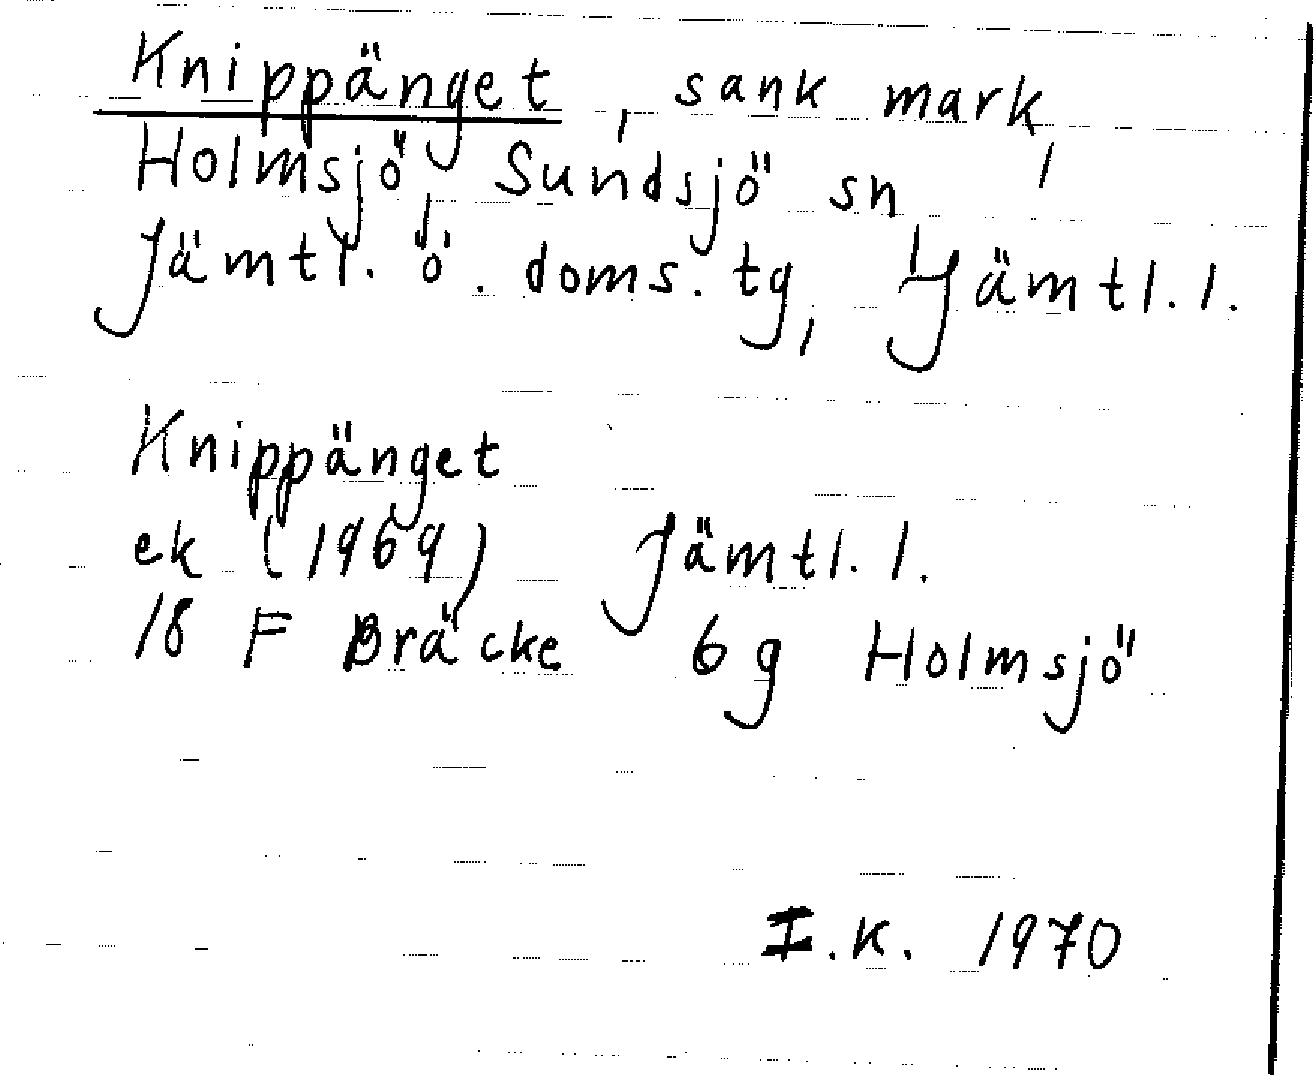 Knippänget, sank mark,
Holmsjö, Sundsjö sn,
Jämtl. ö. doms. tg, Jämtl. l.
Knippänget
ek (1969) Jämtl. l.
18 F Bräcke 6g Holmsjö
I.K. 1970